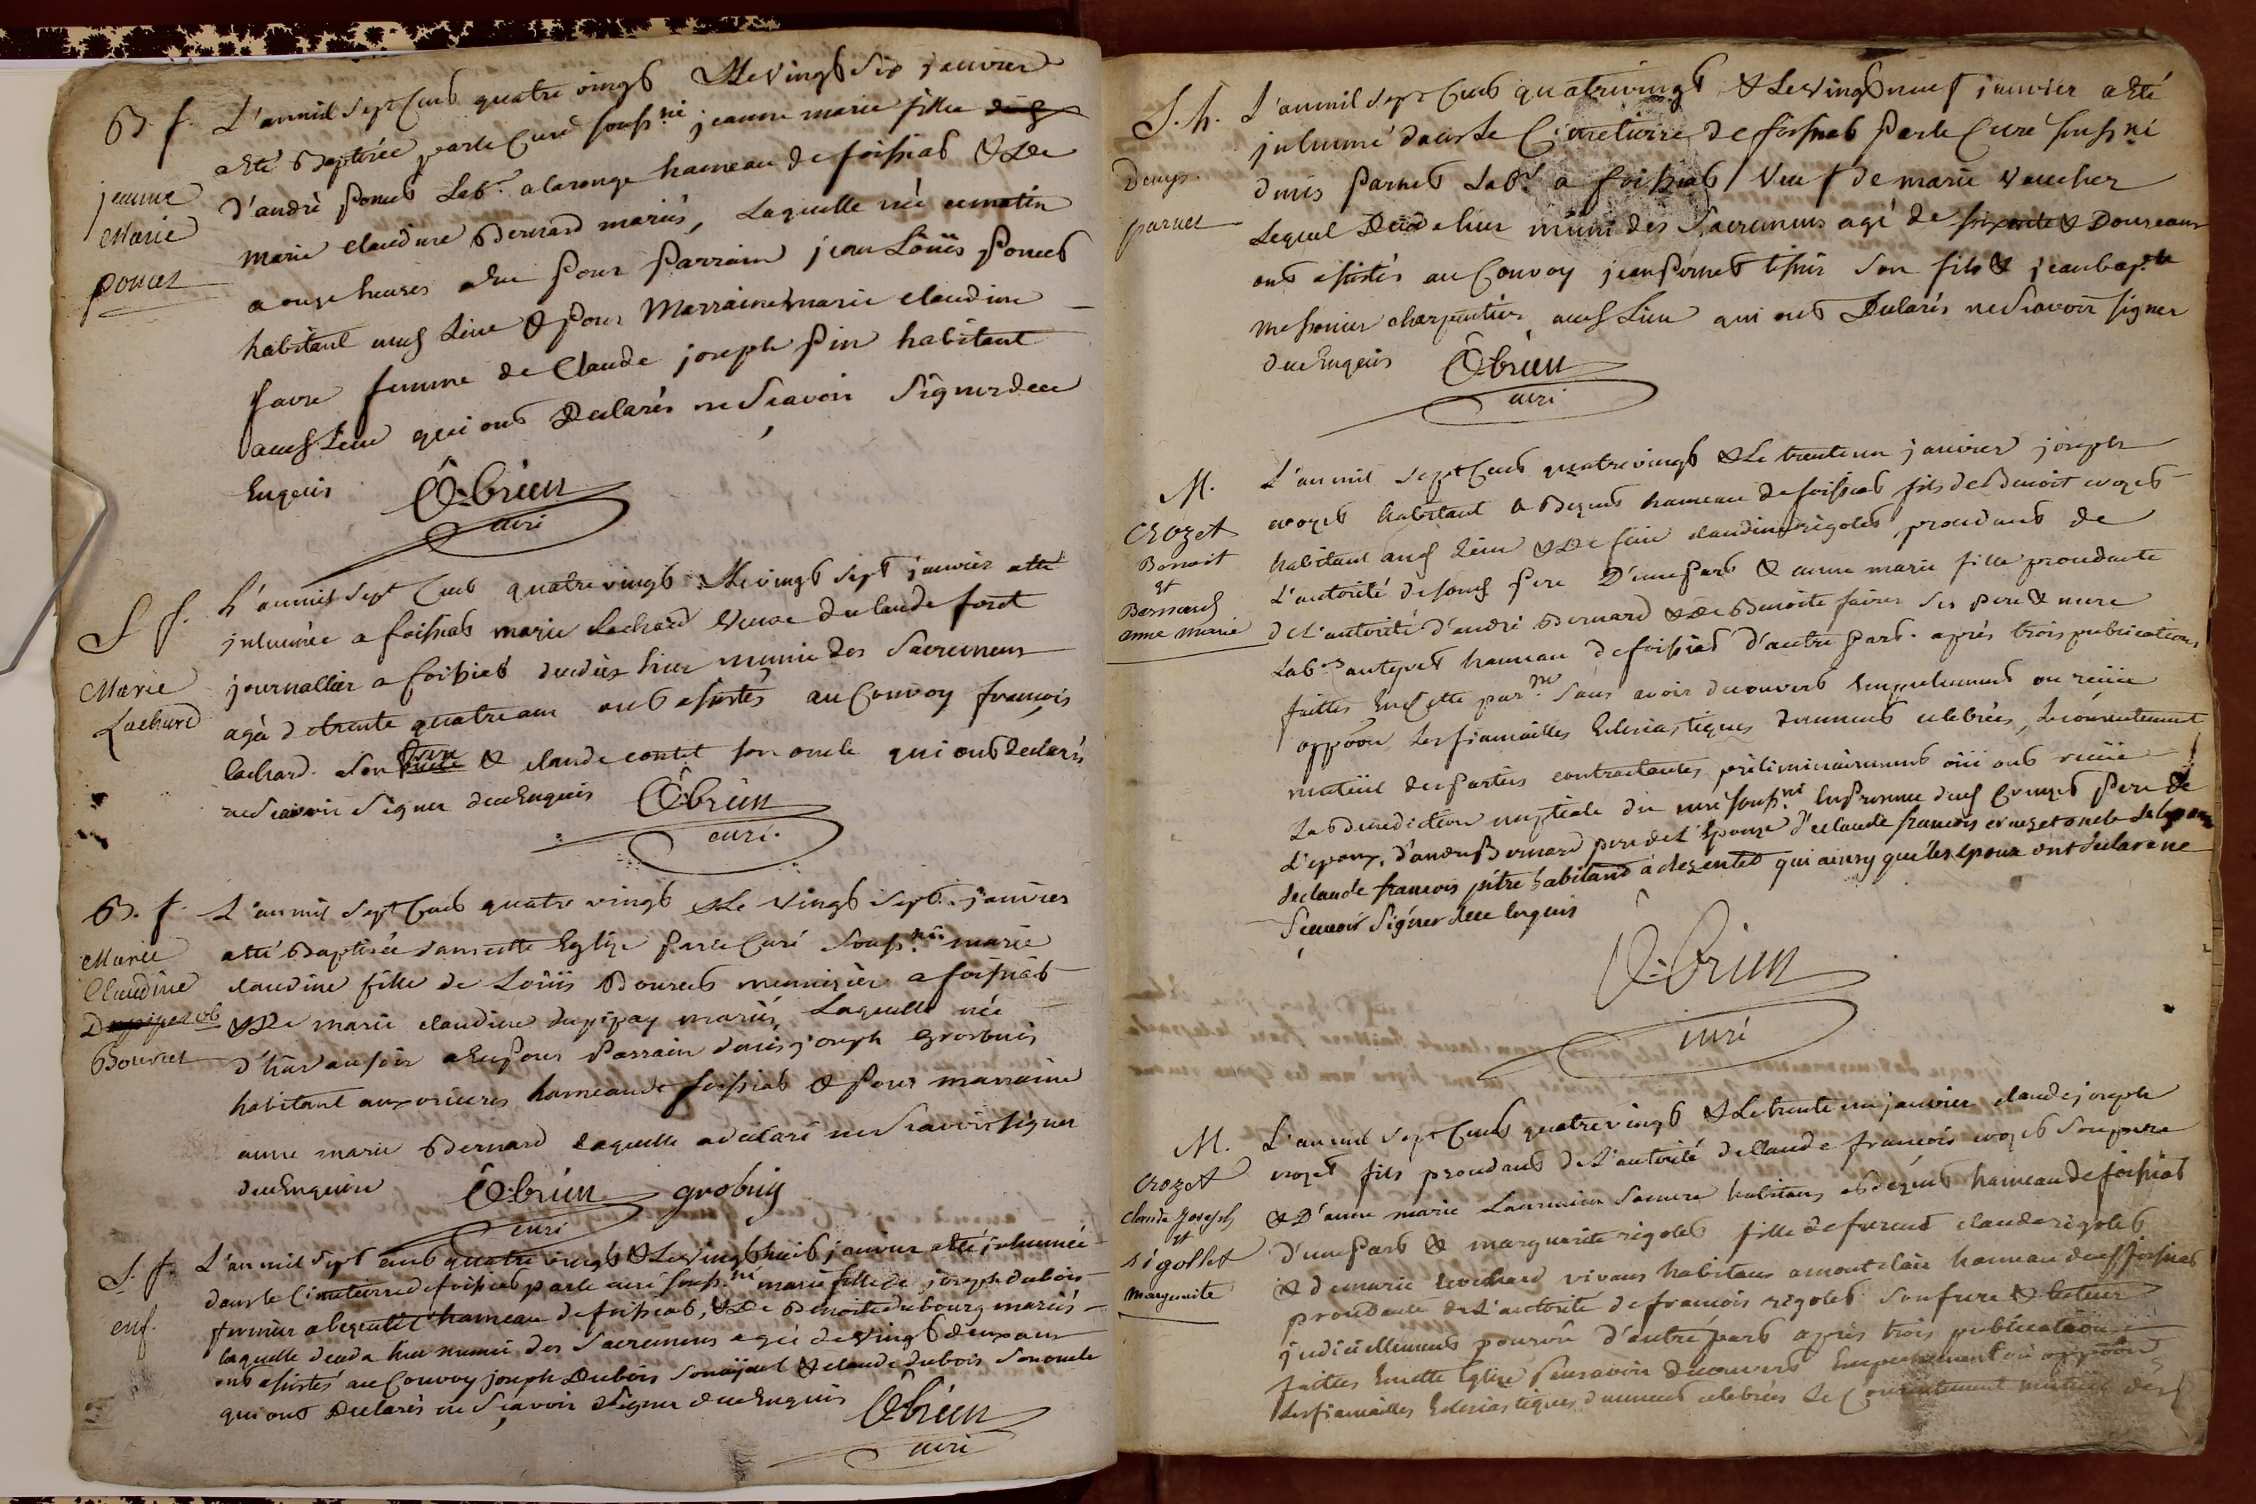 B. f.
jeanne
Marie
poncet
L'an mil sept Cent quatre vingt & le vingt six janvier
a Eté Baptisée par le Curé souss.né jeanne marie fille
d'andré Poncet Lab.r a la ronge hameau de foissiat & de
marie claudine Bernard mariés, Laquelle née ce matin
a onze heures a Eu Pour Parrain jean Loüis Poncet
habitant aud Lieu & Pour Marraine marie claudine
favre femme de Claude joseph Pin habitant
aud Lieu qui ont Declarés ne Sçavoir Signer de ce
Enquis O-brien
curé
S f.
Marie
Lachard
L'an mil sept Cent quatre vingt & le vingt sept janvier a Eté
inhumée a foissiat marie Lachard Veuve de claude foret
journallier a foissiat decedée hier munie des Sacremens
agée de trente quatre ans ont assistés au Convoy françois
Lachard son frere & claude contet son oncle qui ont declarés
ne Scavoir Signer de ce Enquis O-brien
curé.
B. f.
Marie
Claudine
Dupipet
Bouvret
L'an mil sept Cent quatre vingt & Le vingt sept janvier
a Eté Baptisée dans cette Eglise Par le Curé Souss.né marie
claudine fille de Loüis Bouret menuisier a foissiat
& De marie claudine dupipay mariés, Laquelle née
d'hier au soir a Eu Pour Parrain denis joseph Grosbuis
habitant aux orieres hameau de foissiat & Pour marraine
anne marie Bernard laquelle a declaré ne Scavoir signer
de ce Enquise O-brien grobuis
curé
S. f.
enf.
L'an mil sept cent quatre vingt & Le vingt huit janvier a Eté inhumée
dans le Cimetierre de foissiat par le curé souss.né marie fille de joseph dubois
fermier a hameau de foissiat, & De Benoite dubourg mariés
laquelle deceda hier munie des Sacremens agée de vingt deux ans
ont assistés au Convoy joseph Dubois son ayeul & claude dubois son oncle
qui ont Declarés ne Sçavoir Signer de ce Enquis O-brien
curé
S. h.
Denys
parnet
L'an mil sept Cent quatre vingt & Le vingt neuf janvier a Eté
inhumé dans Le Cimetierre de foissiat Par le Curé souss.né
denis Parnet Lab.r a foissiat Veuf de marie Vaucher
Lequel Deceda hier muni des Sacremens agé de soixante & Douze ans
ont assistés au Convoy jean Parnet tissier Son fils & jean bap.te
messonier charpentier aud Lieu qui ont Declarés ne Scavoir signer
de ce Enquis O-brien
curé
M.
Crozet
Bonoit
et
Bernard
anne marie
L'an mil sept Cent quatre vingt & Le trente un janvier joseph
crozet habitant a hameau de foissiat fils de Benoit crozet
habitant aud Lieu & De feue claudine rigolet procedant de
L'autorité de soud Pere D'une Part & anne marie fille procedante
de L'autorité d'andré Bernard & De Benoite faivre Ses pere & mere
Lab.rs hameau de foissiat d'autre Part. après trois publications
faittes En Cette par.sse Sans avoir decouvert Empechement ou reçüe
oppôon Les fiançailles Eclesiastiques duement celebrées, Le consentement
mutüel des Parties contractantes préliminairement oüi ont reçüe
La Benediction nuptiale du curé souss.né En Presence dud Crozet Pere de
L'epoux, d'andre Bernard pere de L'Epouse de claude francois crozet oncle de l'epoux
de claude francois pitre habitand à qui ainsy que les epoux ont declare ne
Scavoir Signer de ce Enquis
O-brien
curé
M.
Crozet
Claude Joseph
et
rigollet
Marguerite
L'an mil sept Cent quatre vingt & Le trente un janvier claude joseph
crozet fils procedant de L'autorité de Claude francois crozet Son pere
& D'anne marie Sa mere habitans hameau de foissiat
d'une Part & marguerite rigolet fille de furent claude rigolet
& de marie vivans habitans a montclair hameau dud foissiat
procedante de L'autorité de francois rigolet Son frere &
judiciellement pourvû d'autre part après trois publications
faittes En cette Eglise Sans avoir decouvert Empechement ou oppôon
Les fiançailles Eclesiastiques duement celebrées Le Consentement mutuel des